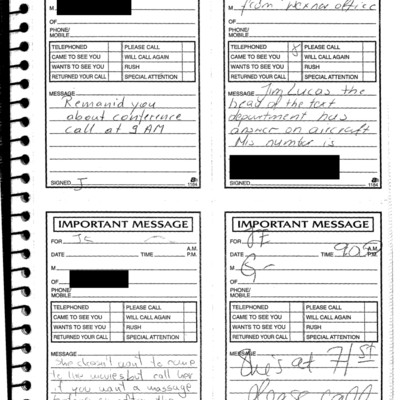 M
OF
PHONE/
MOBILE
TELEPHONED PLEASE CALL
CAME TO SEE YOU WILL CALL AGAIN
WANTS TO SEE YOU RUSH
RETURNED YOUR CALL SPECIAL ATTENTION
MESSAGE
Remanid you
about conference
call at 9 AM
SIGNED J
1184
M from office
OF
PHONE/
MOBILE
TELEPHONED PLEASE CALL
CAME TO SEE YOU WILL CALL AGAIN
WANTS TO SEE YOU RUSH
RETURNED YOUR CALL SPECIAL ATTENTION
MESSAGE Jim Lucas the
head of the
department has
answer on aircraft
His number is
SIGNED
1184
IMPORTANT MESSAGE
FOR
A.M.
DATE TIME P.M.
M
OF
PHONE/
MOBILE
TELEPHONED PLEASE CALL
CAME TO SEE YOU WILL CALL AGAIN
WANTS TO SEE YOU RUSH
RETURNED YOUR CALL SPECIAL ATTENTION
MESSAGE
She doesn't want to
to the movies but call her
if you want a massage
IMPORTANT MESSAGE
FOR JE
A.M.
DATE TIME P.M.
M
OF G-
PHONE/
MOBILE
TELEPHONED PLEASE CALL
CAME TO SEE YOU WILL CALL AGAIN
WANTS TO SEE YOU RUSH
RETURNED YOUR CALL SPECIAL ATTENTION
MESSAGE
She's at 71st
Please call